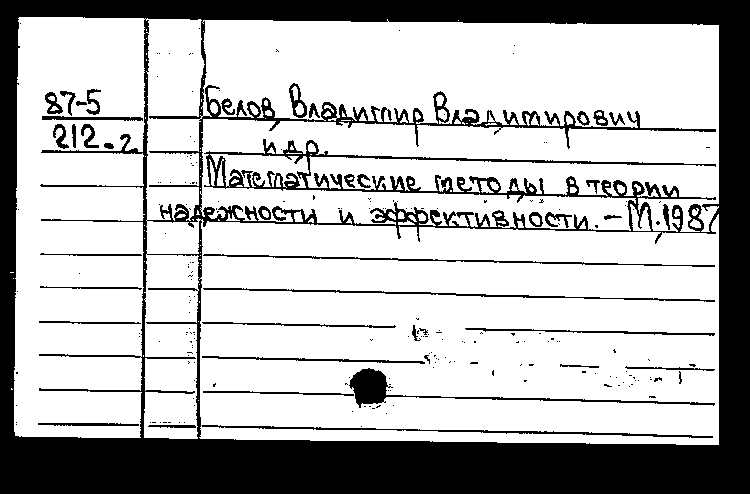 87-5
212-2
Белов, Владимир Владимирович
и др.
Математические методы в теории
надежности и эффективности. - М., 1987